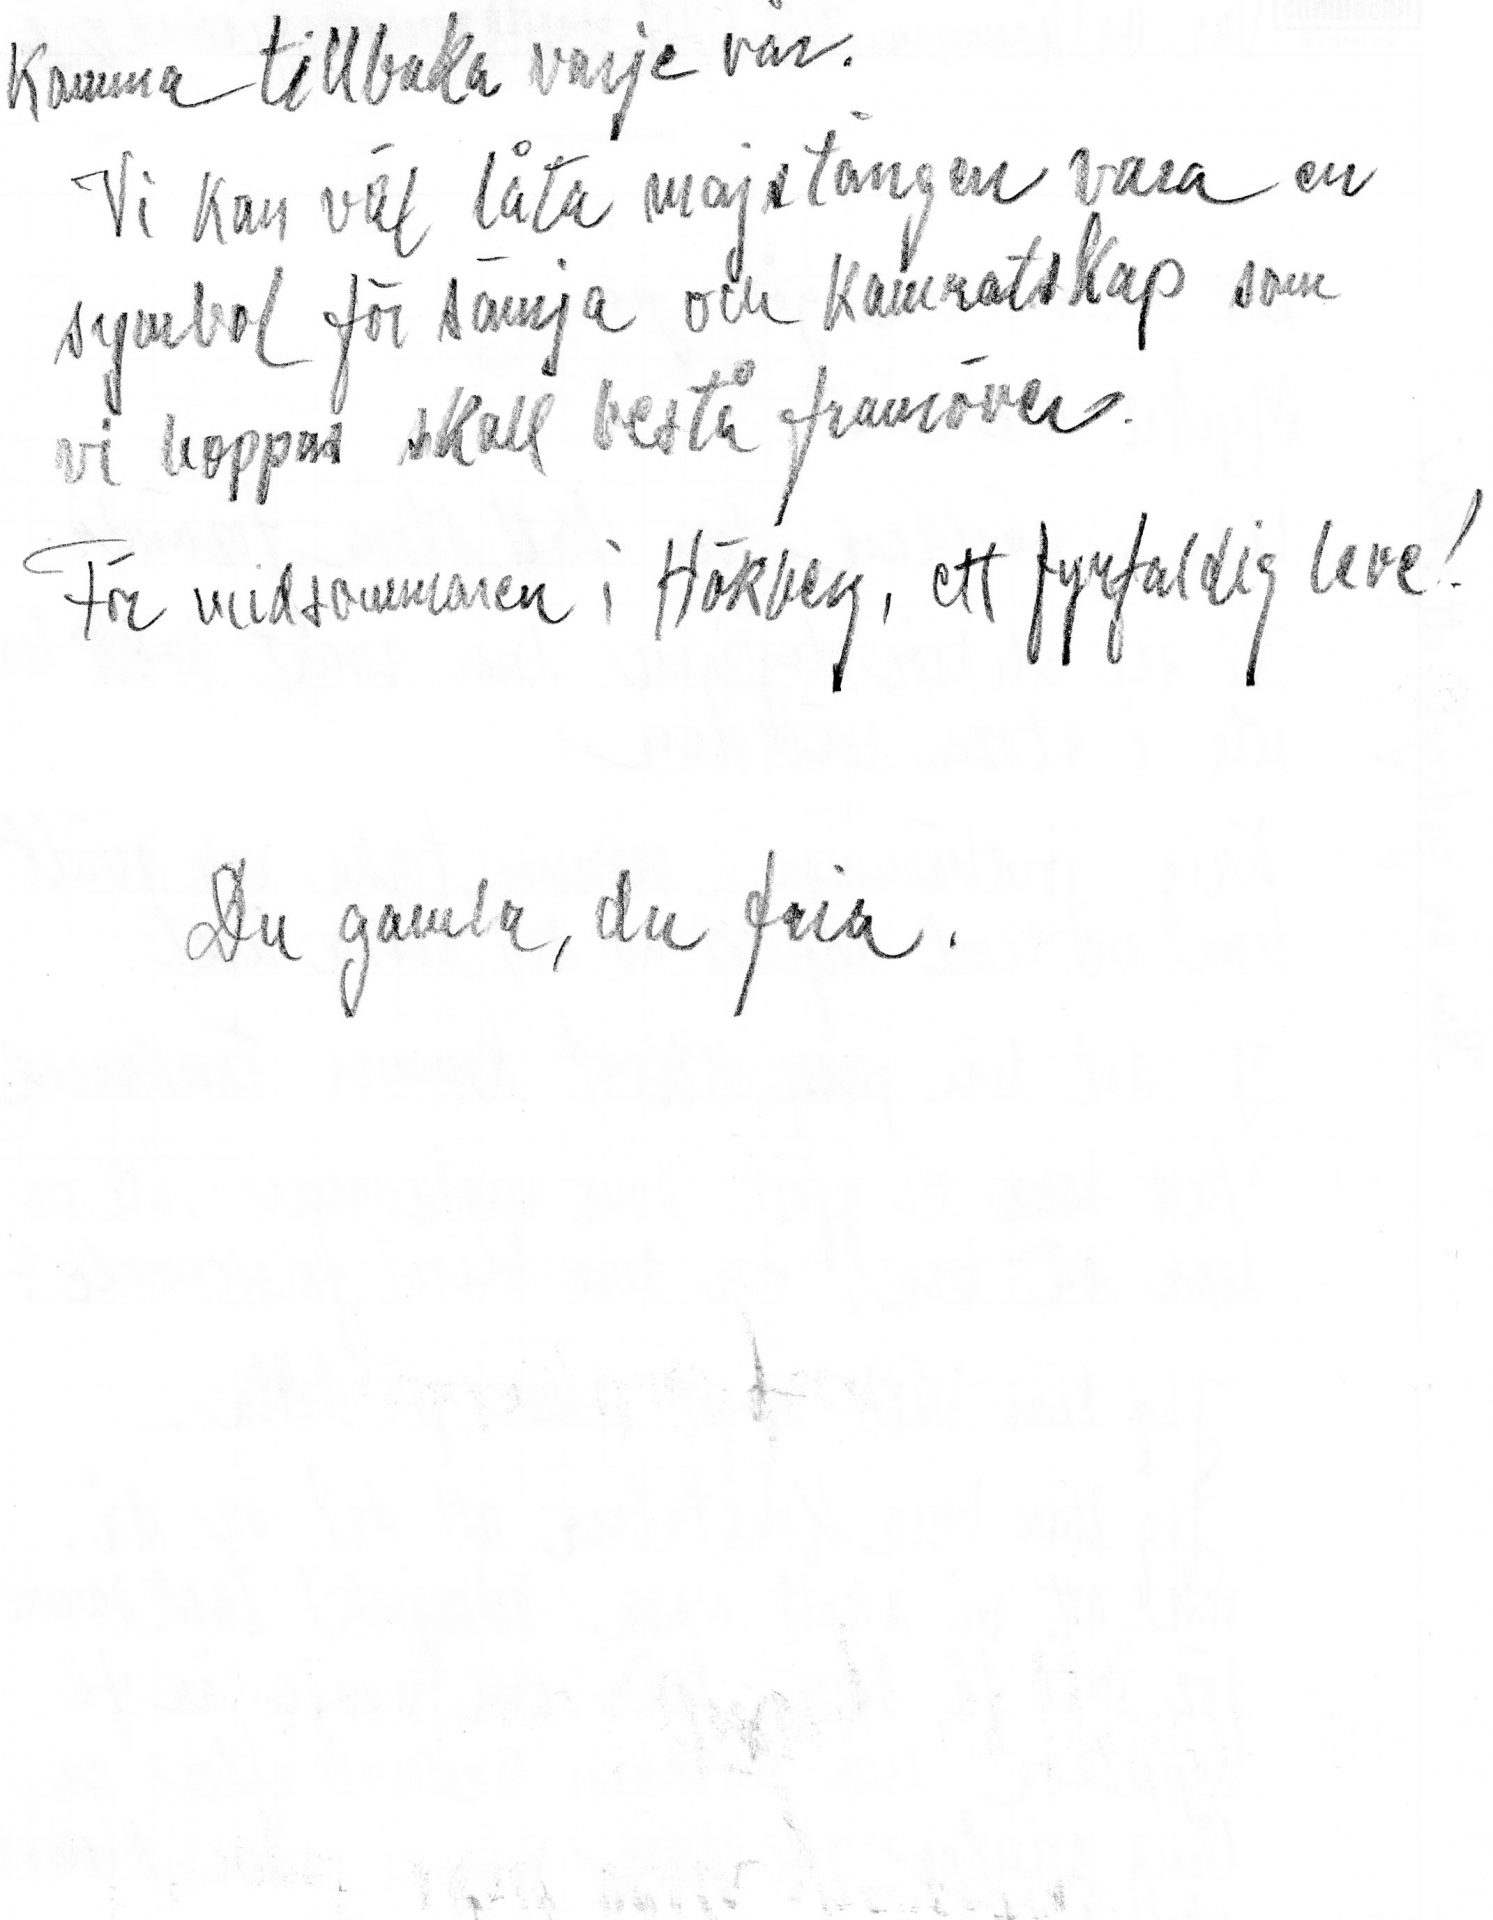 komma tillbaka varje vår.
Vi kan väl låta majstången vara en
symbol för sämja och kamratskap som
vi hoppas skall bestå framöver.
För midsommaren i Hökberg, ett fyrfaldig leve!
Du gamla, du fria.